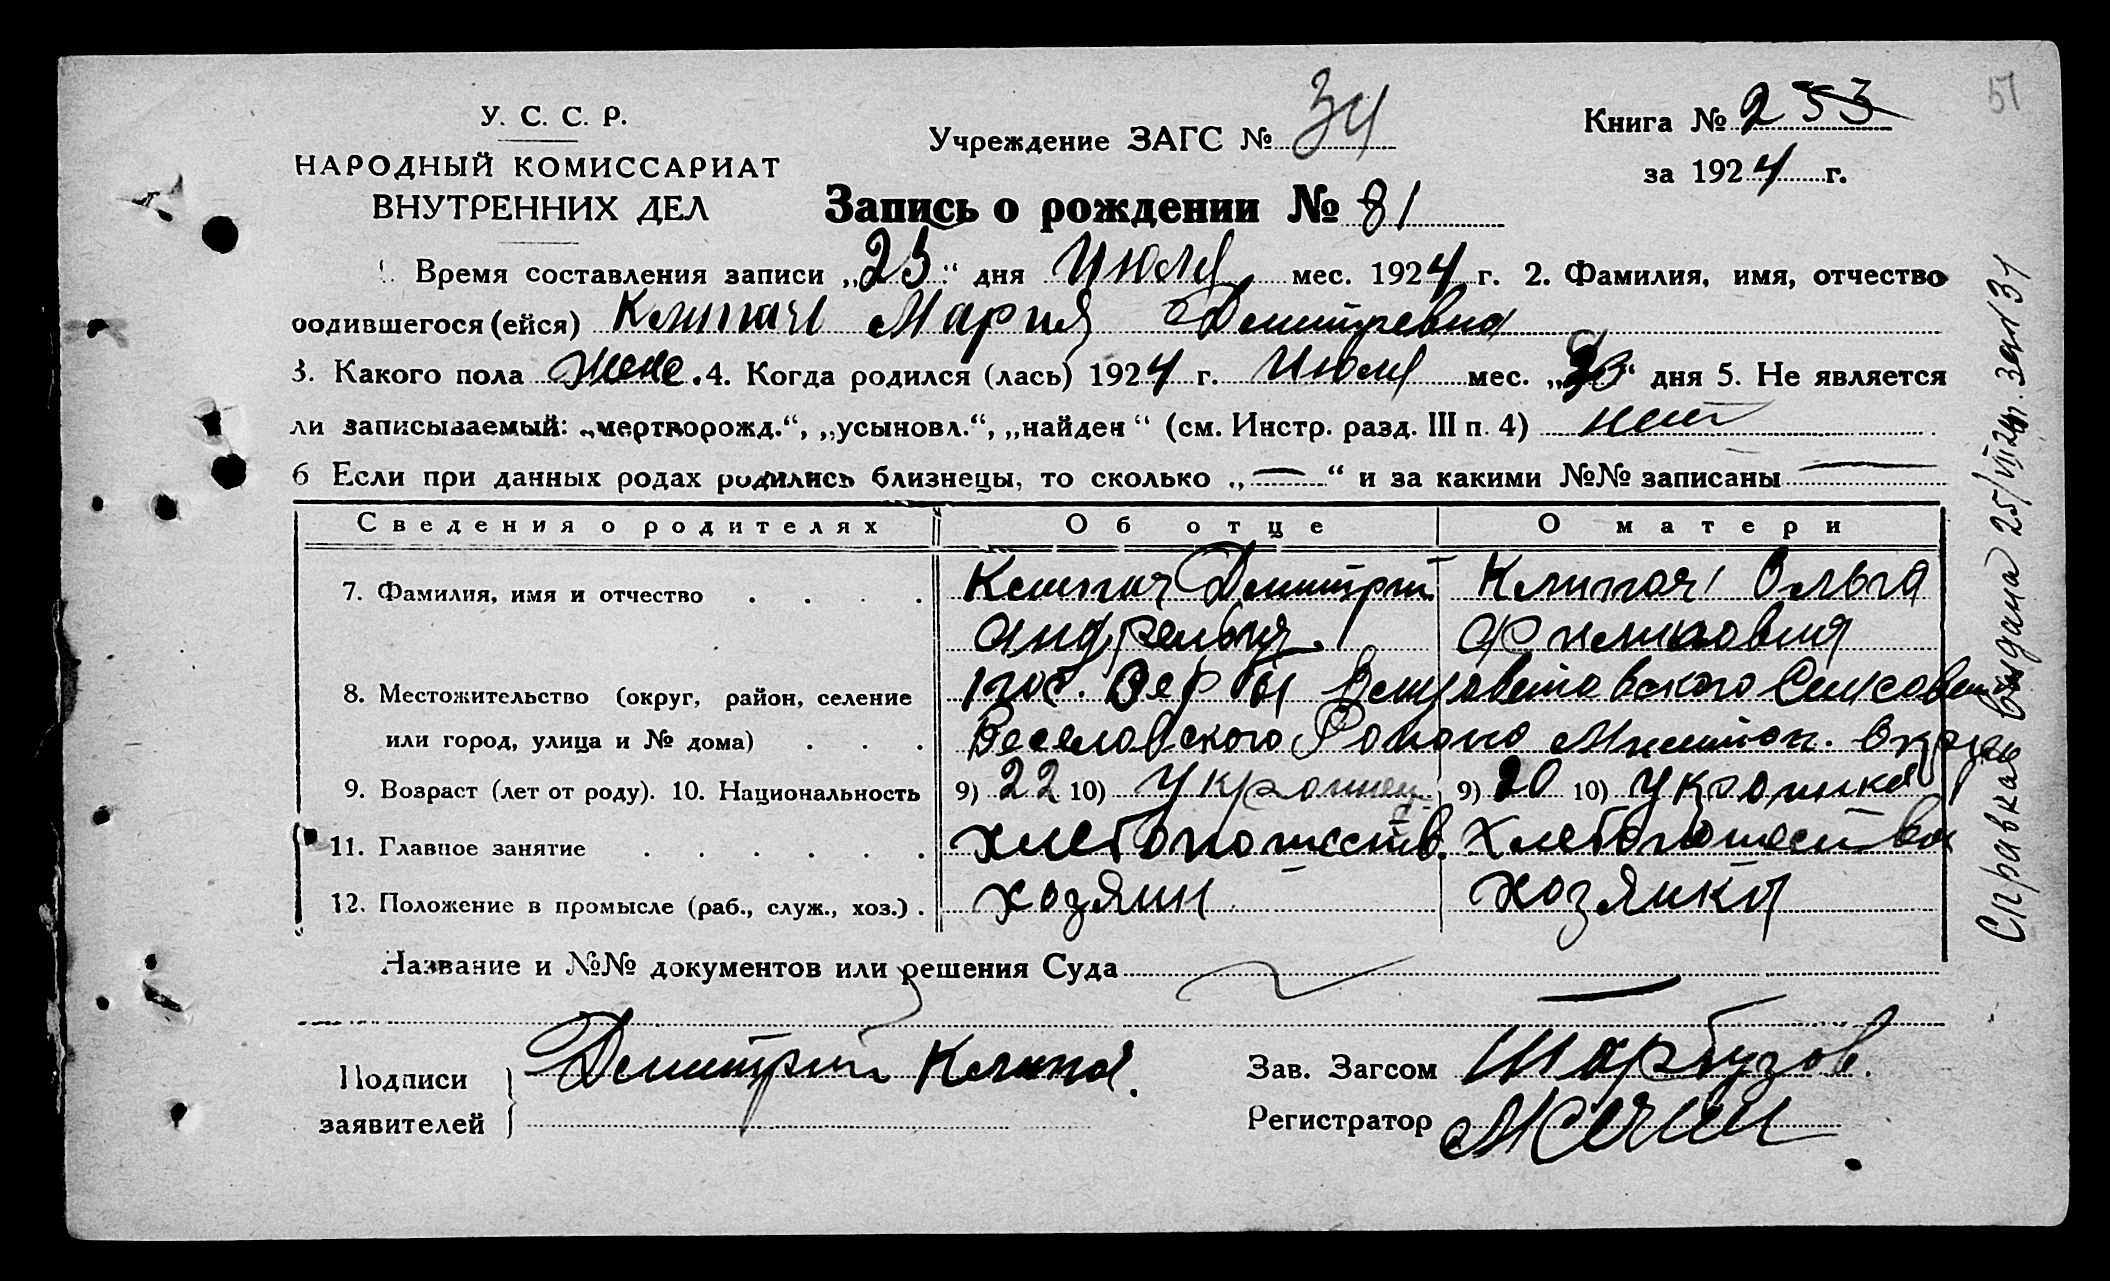 У. С. С. Р.
НАРОДНЫЙ КОМИССАРИАТ
ВНУТРЕННИХ ДЕЛ
Учреждение ЗАГС № 34
Книга № 253
за 1924 г.
51
Запись о рождении № 81
Время составления записи „25“ дня Июля мес. 1924 г. 2. Фамилия, имя, отчество
родившегося (ейся) Клипач Мария Дмитревна
3. Какого пола женс. 4. Когда родился (лась) 1924 г. Июля мес. „ “ дня 5. Не является
ли записываемый: „мертворожд.“, „усыновл.“, „найден“ (см. Инстр. разд. III п. 4) нет
6 Если при данных родах родились близнецы, то сколько „—“ и за какими №№ записаны —
Сведения о родителях Об отце О матери
7. Фамилия, имя и отчество Клипач Дмитрий Клипач Ольга
Андреевич Филиповна
8. Местожительство (округ, район, селение пос. Вербы Сельсовета
или город, улица и № дома) Веселовского Района Мелитоп. Округа
9. Возраст (лет от роду). 10. Национальность 9) 22 10) Украинец 9) 20 10) Украинка
11. Главное занятие хлебопашеств. Хлебопашество
12. Положение в промысле (раб., служ., хоз.) хозяин хозяйка
Название и №№ документов или решения Суда
Подписи
заявителей
Дмитрий Клипач
Зав. Загсом
Регистратор
Справка выдана 25/VII 24 г. за № 31